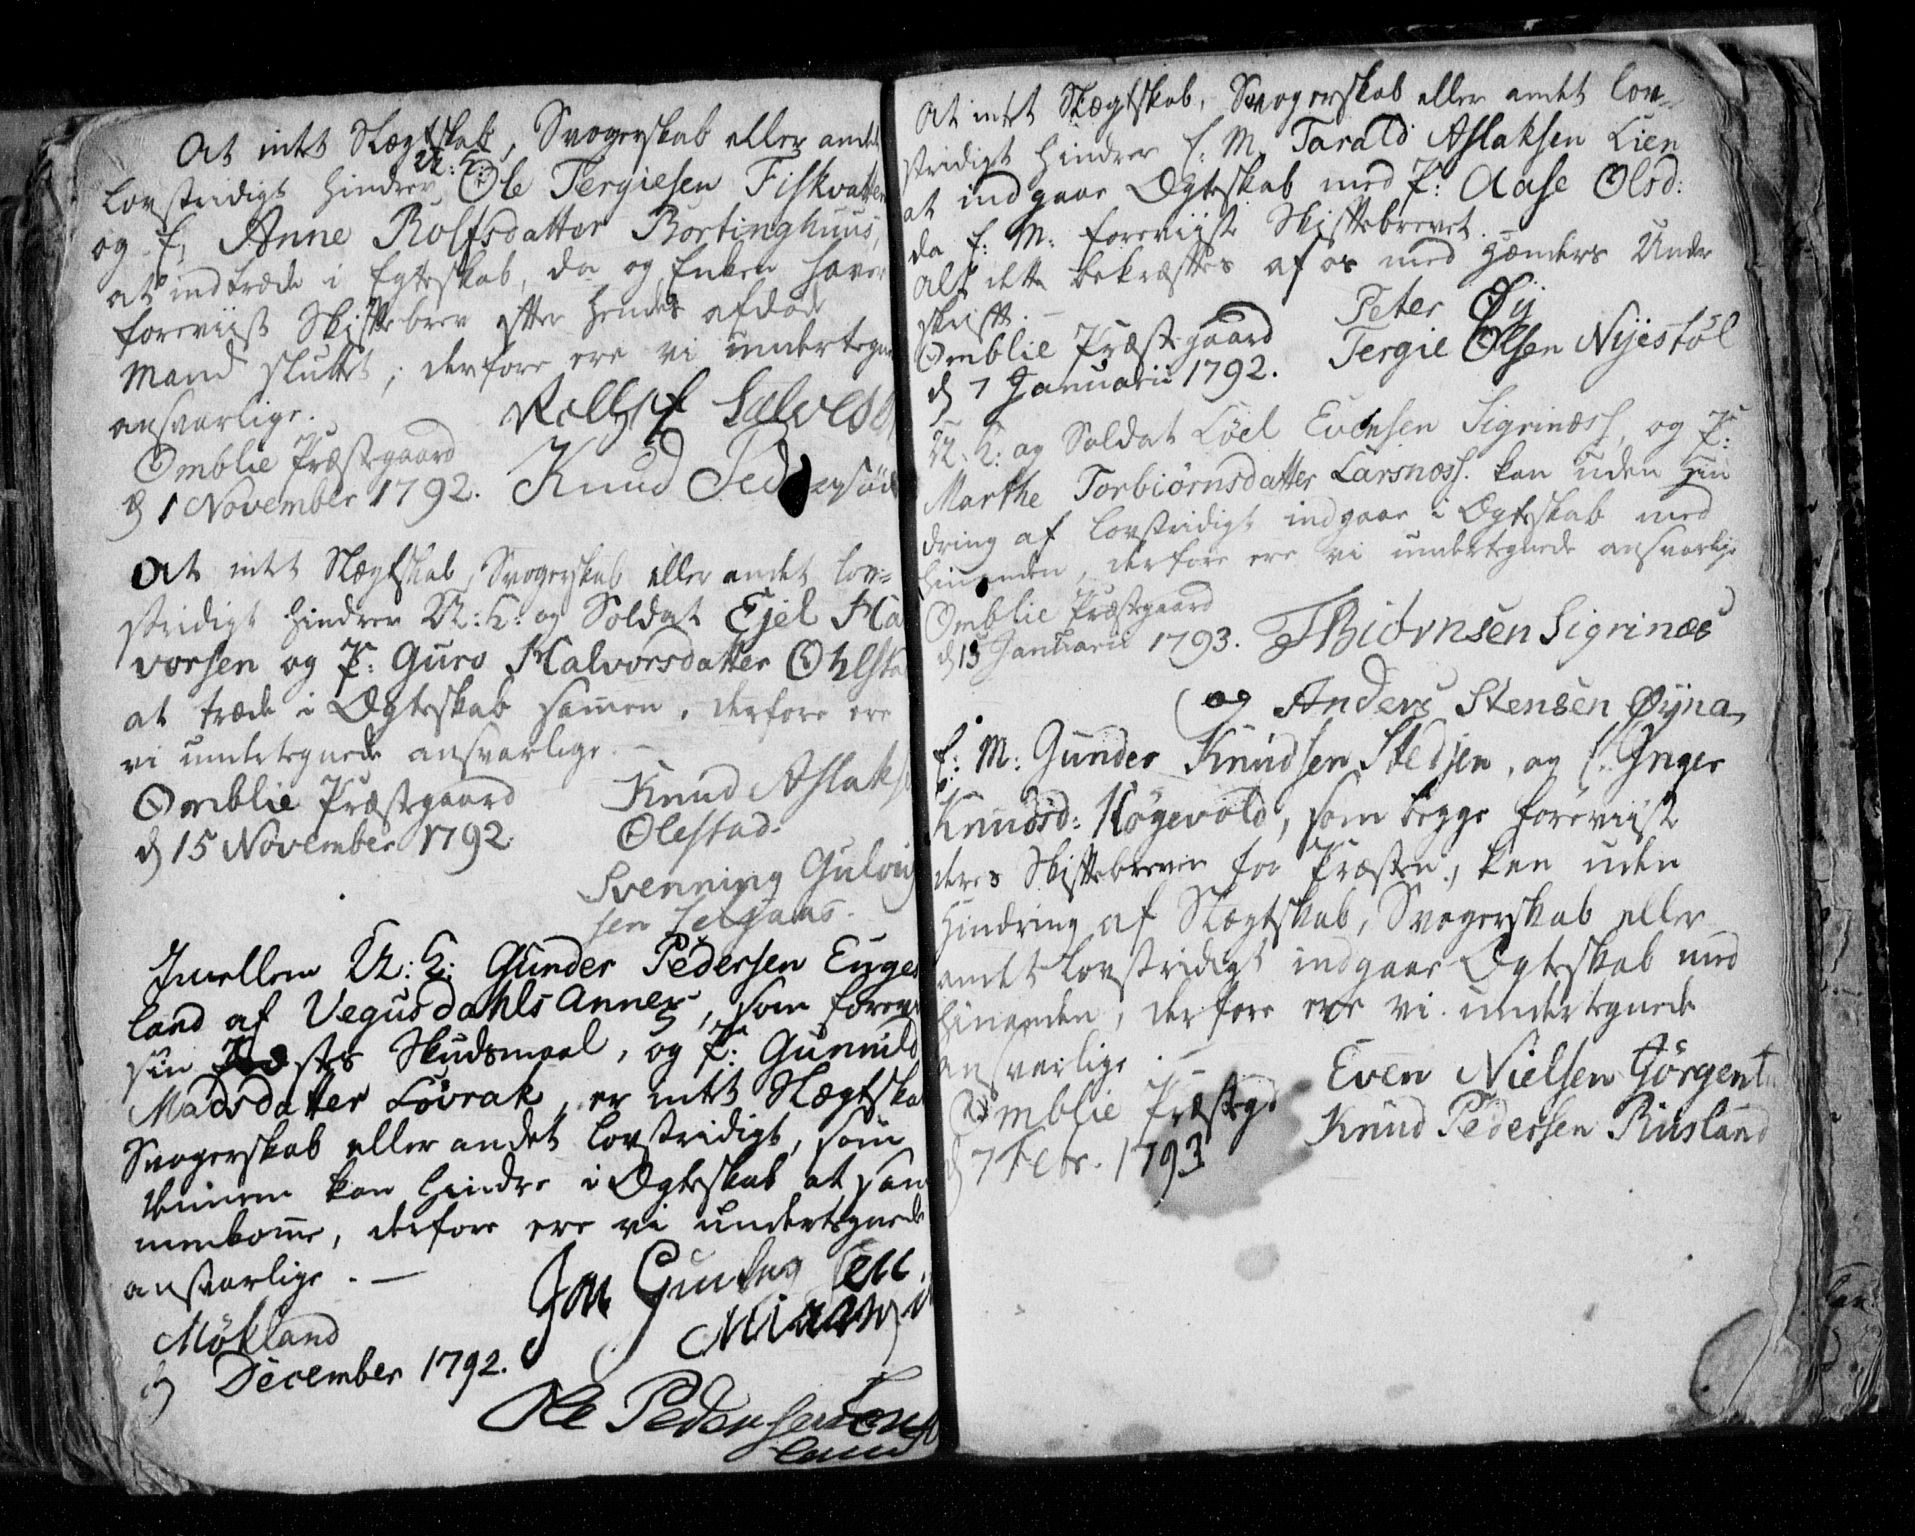 At intet Slægtskab, Svogerskab eller andet
lovstridigt hindrer U: K: Ole Tergiesen Fiskvatten
og E: Anne Rolfsdatter Bortinghuus,
at indtræde i Egteskab, da og Enken haver
foreviist Skiftebrev efter hendes afdøde
Mand sluttet; derfore ere vi undertegnede
ansvarlige.
Omblie Præstegaard
d 1 November 1792.
Rollef Salvesen
Knud
At intet Slægtskab, Svogerskab eller andet lov=
stridigt hindrer U: K: og Soldat Ejel Hal
vorsen og P: Guro Halvorsdatter Ohlsta
at træde i Ægteskab sammen, derfore ere
vi undertegnede ansvarlige. —
Omblie Præstegaard
d 15 November 1792.
Knud Aslaks
Olestad.
Svenning Gulov
sen
Imellem U: K: Gunder Pedersen Euge
land af Vegusdahls Annex, som forev
sin Præstes Skudsmaal, og P: Gunnild
Madsdatter Løvrak, er intet Slægtskab
Svogerskab eller andet lovstridigt, som
kan hindre i Ægteskab at sam
menkomme, derfore ere vi undertegnede
ansvarlige. —
Møkland
d December 1792.
Jon
Ole Pedersen
land
At intet Slægtskab, Svogerskab eller andet lov=
stridigt hindrer E: M: Tarald Aslaksen Lien
at indgaae Ægteskab med P: Aase Olsd:
da E: M: foreviiste Skiftebrevet.
Alt dette bekræftes af os med Hænders Under
skrift. —
Omblie Præstegaard
d 7 Januarii 1792.
Peter Øy
Tergie Olsen Nyestøl
U: K: og Soldat Løel Evensen Sigrinæs, og P:
Marthe Torbiørnsdatter Larsnæs. kan uden Hin
dring af lovstridigt indgaae i Ægteskab med
hinanden, derfore ere vi undertegnede ansvarlige
Omblie Præstegaard
d 15 Januarii 1793.
TBiørnsen Sigrinæs
og Anders Stensen Øyna,
E: M: Gunder Knudsen Stedjen, og E: Inger
Knudsd: Høgevold, som begge foreviiste
deres Skiftebrever for Præsten, kan uden
Hindring af Slægtskab, Svogerskab eller
andet lovstridigt indgaae Ægteskab med
hinanden, derfore ere vi undertegnede
ansvarlige. —
Omblie Præstegd
d 7 Febr. 1793
Even Nielsen Gørgent
Knud Pedersen Risland